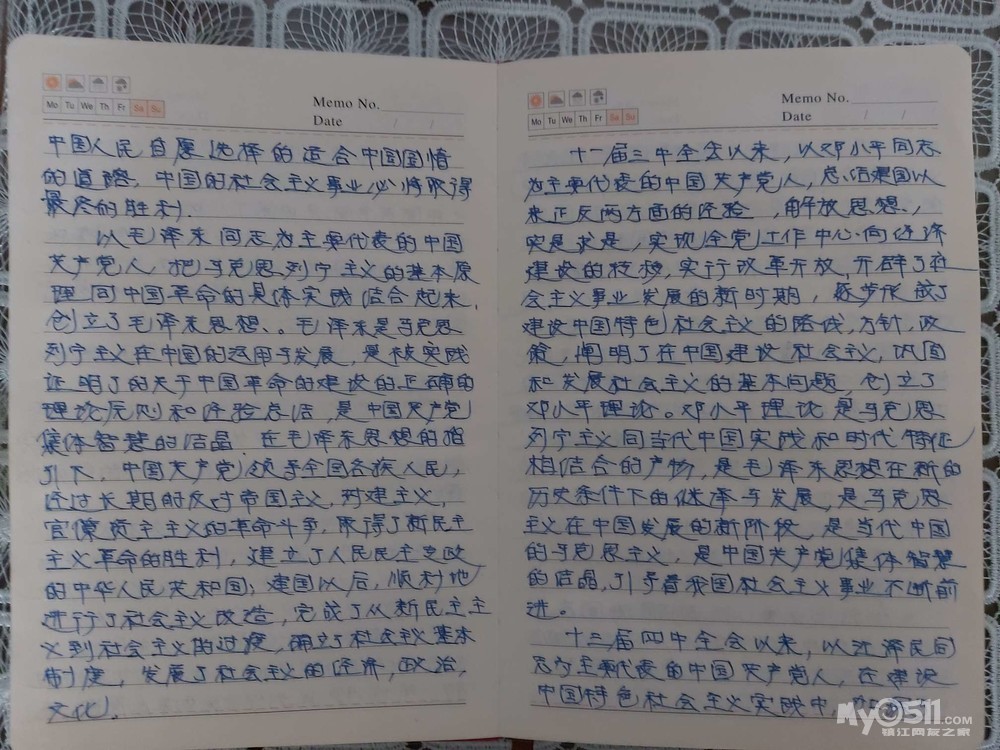 Mo Tu We Th Fr Sa Su
Memo No.
Date / /
中国人民自愿选择的适合中国国情
的道路，中国的社会主义事业必将取得
最终的胜利.
以毛泽东同志为主要代表的中国
共产党人，把马克思列宁主义的基本原
理同中国革命的具体实践结合起来，
创立了毛泽东思想、。毛泽东是马克思
列宁主义在中国的运用与发展，是被实践
证明了的关于中国革命的建设的正确的
理论原则和经验总结，是中国共产党
集体智慧的结晶.在毛泽东思想的指
引下，中国共产党领导全国各族人民，
经过长期的反对帝国主义，封建主义，
官僚资主主义的革命斗争，取得了新民主
主义革命的胜利，建立了人民民主专政
的中华人民共和国；建国以后，顺利地
进行了社会主义改造，完成了从新民主主
义到社会主义的过渡，确立了社会主义基本
制度，发展了社会主义的经济，政治，
文化.
Mo Tu We Th Fr Sa Su
Memo No.
Date / /
十一届三中全会以来，以邓小平同志
为主要代表的中国共产党人，总结建国以
来正反两方面的经验，解放思想、，
实是求是，实现全党工作中心向经济
建设的转移，实行改革开放，开辟了社
会主义事业发展的新时期，逐步形成了
建设中国特色社会主义的路线，方针，政
策，阐明了在中国建设社会主义，巩固
和发展社会主义的基本问题，创立了
邓小平理论。邓小平理论是马克思
列宁主义同当代中国实践和时代特征
相结合的产物，是毛泽东思想在新的
历史条件下的继承与发展，是马克思
主义在中国发展的新阶段，是当代中国
的马克思主义，是中国共产党集体智慧
的结晶，引导着我国社会主义事业不断前
进。
十三届四中全会以来，以江泽民同
志为主要代表的中国共产党人，在建设
中国特色社会主义实践中，
My0511.COM
镇江网友之家